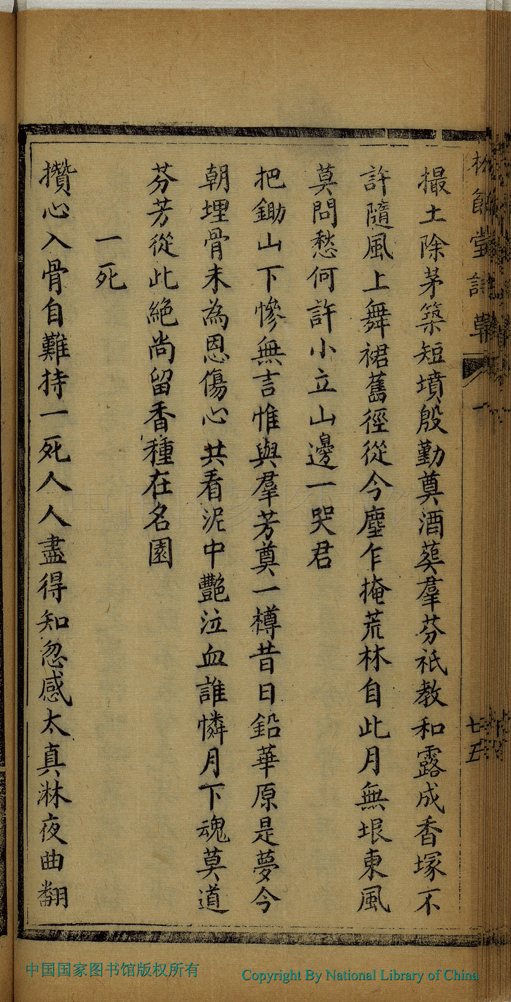 撮土除茅築短墳殷勤奠酒葬羣芬祇教和露成香塚不
許隨風上舞裙舊徑從今塵乍掩荒林自此月無垠東風
莫問愁何許小立山邊一哭君
把鋤山下慘無言惟與羣芳奠一樽昔日鉛華原是夢今
朝埋骨未為恩傷心共看泥中艷泣血誰憐月下魂莫道
芬芳從此絕尚留香種在名園
一死
攢心入骨自難持一死人人盡得知忽感太真淋夜曲翻
七五
中国国家图书馆版权所有
Copyright By National Library of China